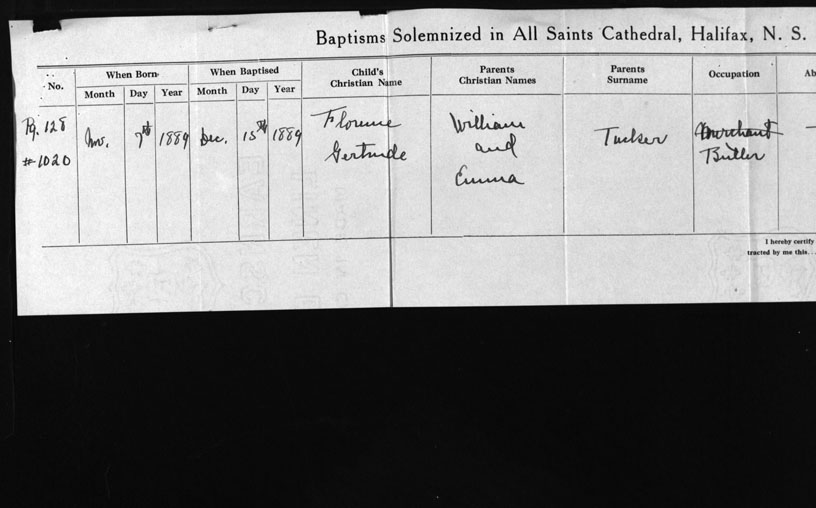 Baptisms Solemnized in All Saints Cathedral, Halifax, N. S.
No.
When Born
Month Day Year
When Baptised
Month Day Year
Child's
Christian Name
Parents
Christian Names
Parents
Surname
Occupation
Ab
Pg. 128
#1020
Nov. 7th 1889 Dec. 15th 1889
Florence
Gertrude
William
and
Emma
Tucker
Merchant
Butler
I hereby certify
tracted by me this...